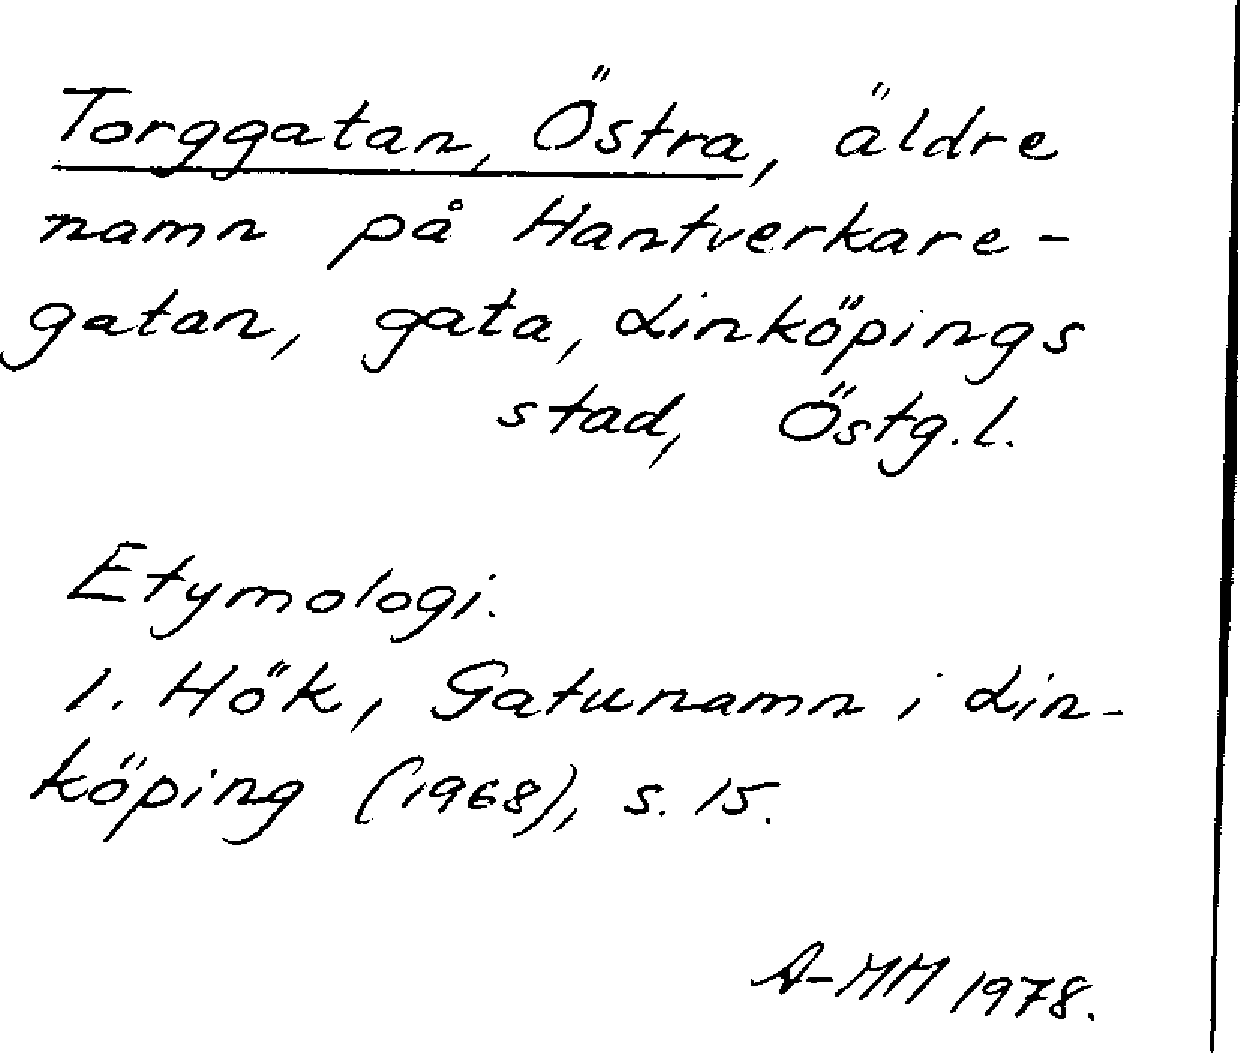 Torggatan, Östra, äldre
namn på Hantverkare-
gatan, gata, Linköpings
stad, Östg.l.
Etymologi.
1. Hök, Gatunamn i Lin-
köping (1968), s. 15.
A-MM 1978.